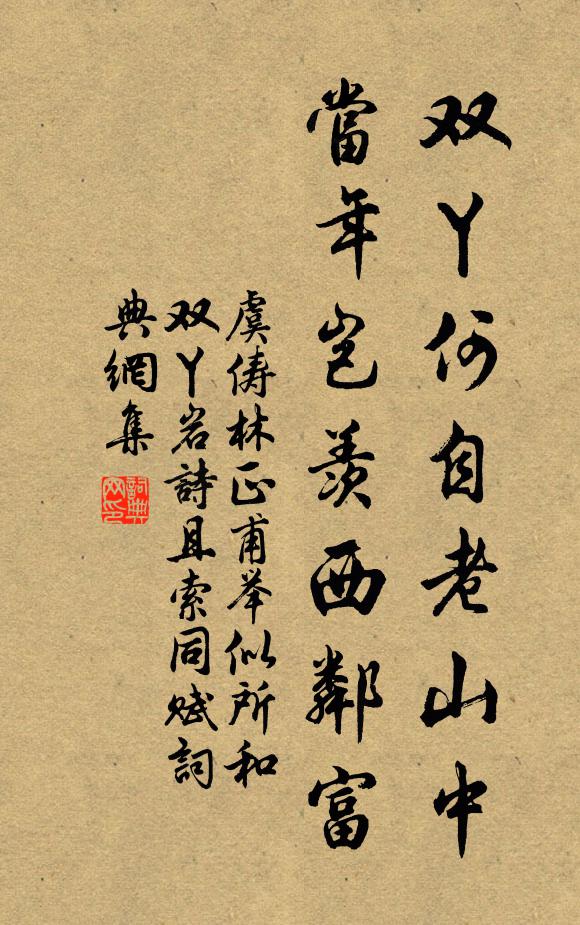 双丫何自老山中
當年岂羨西鄰富
虞俦林正甫举似所和
双丫岩詩且索同赋詞
典網集
詞典网印